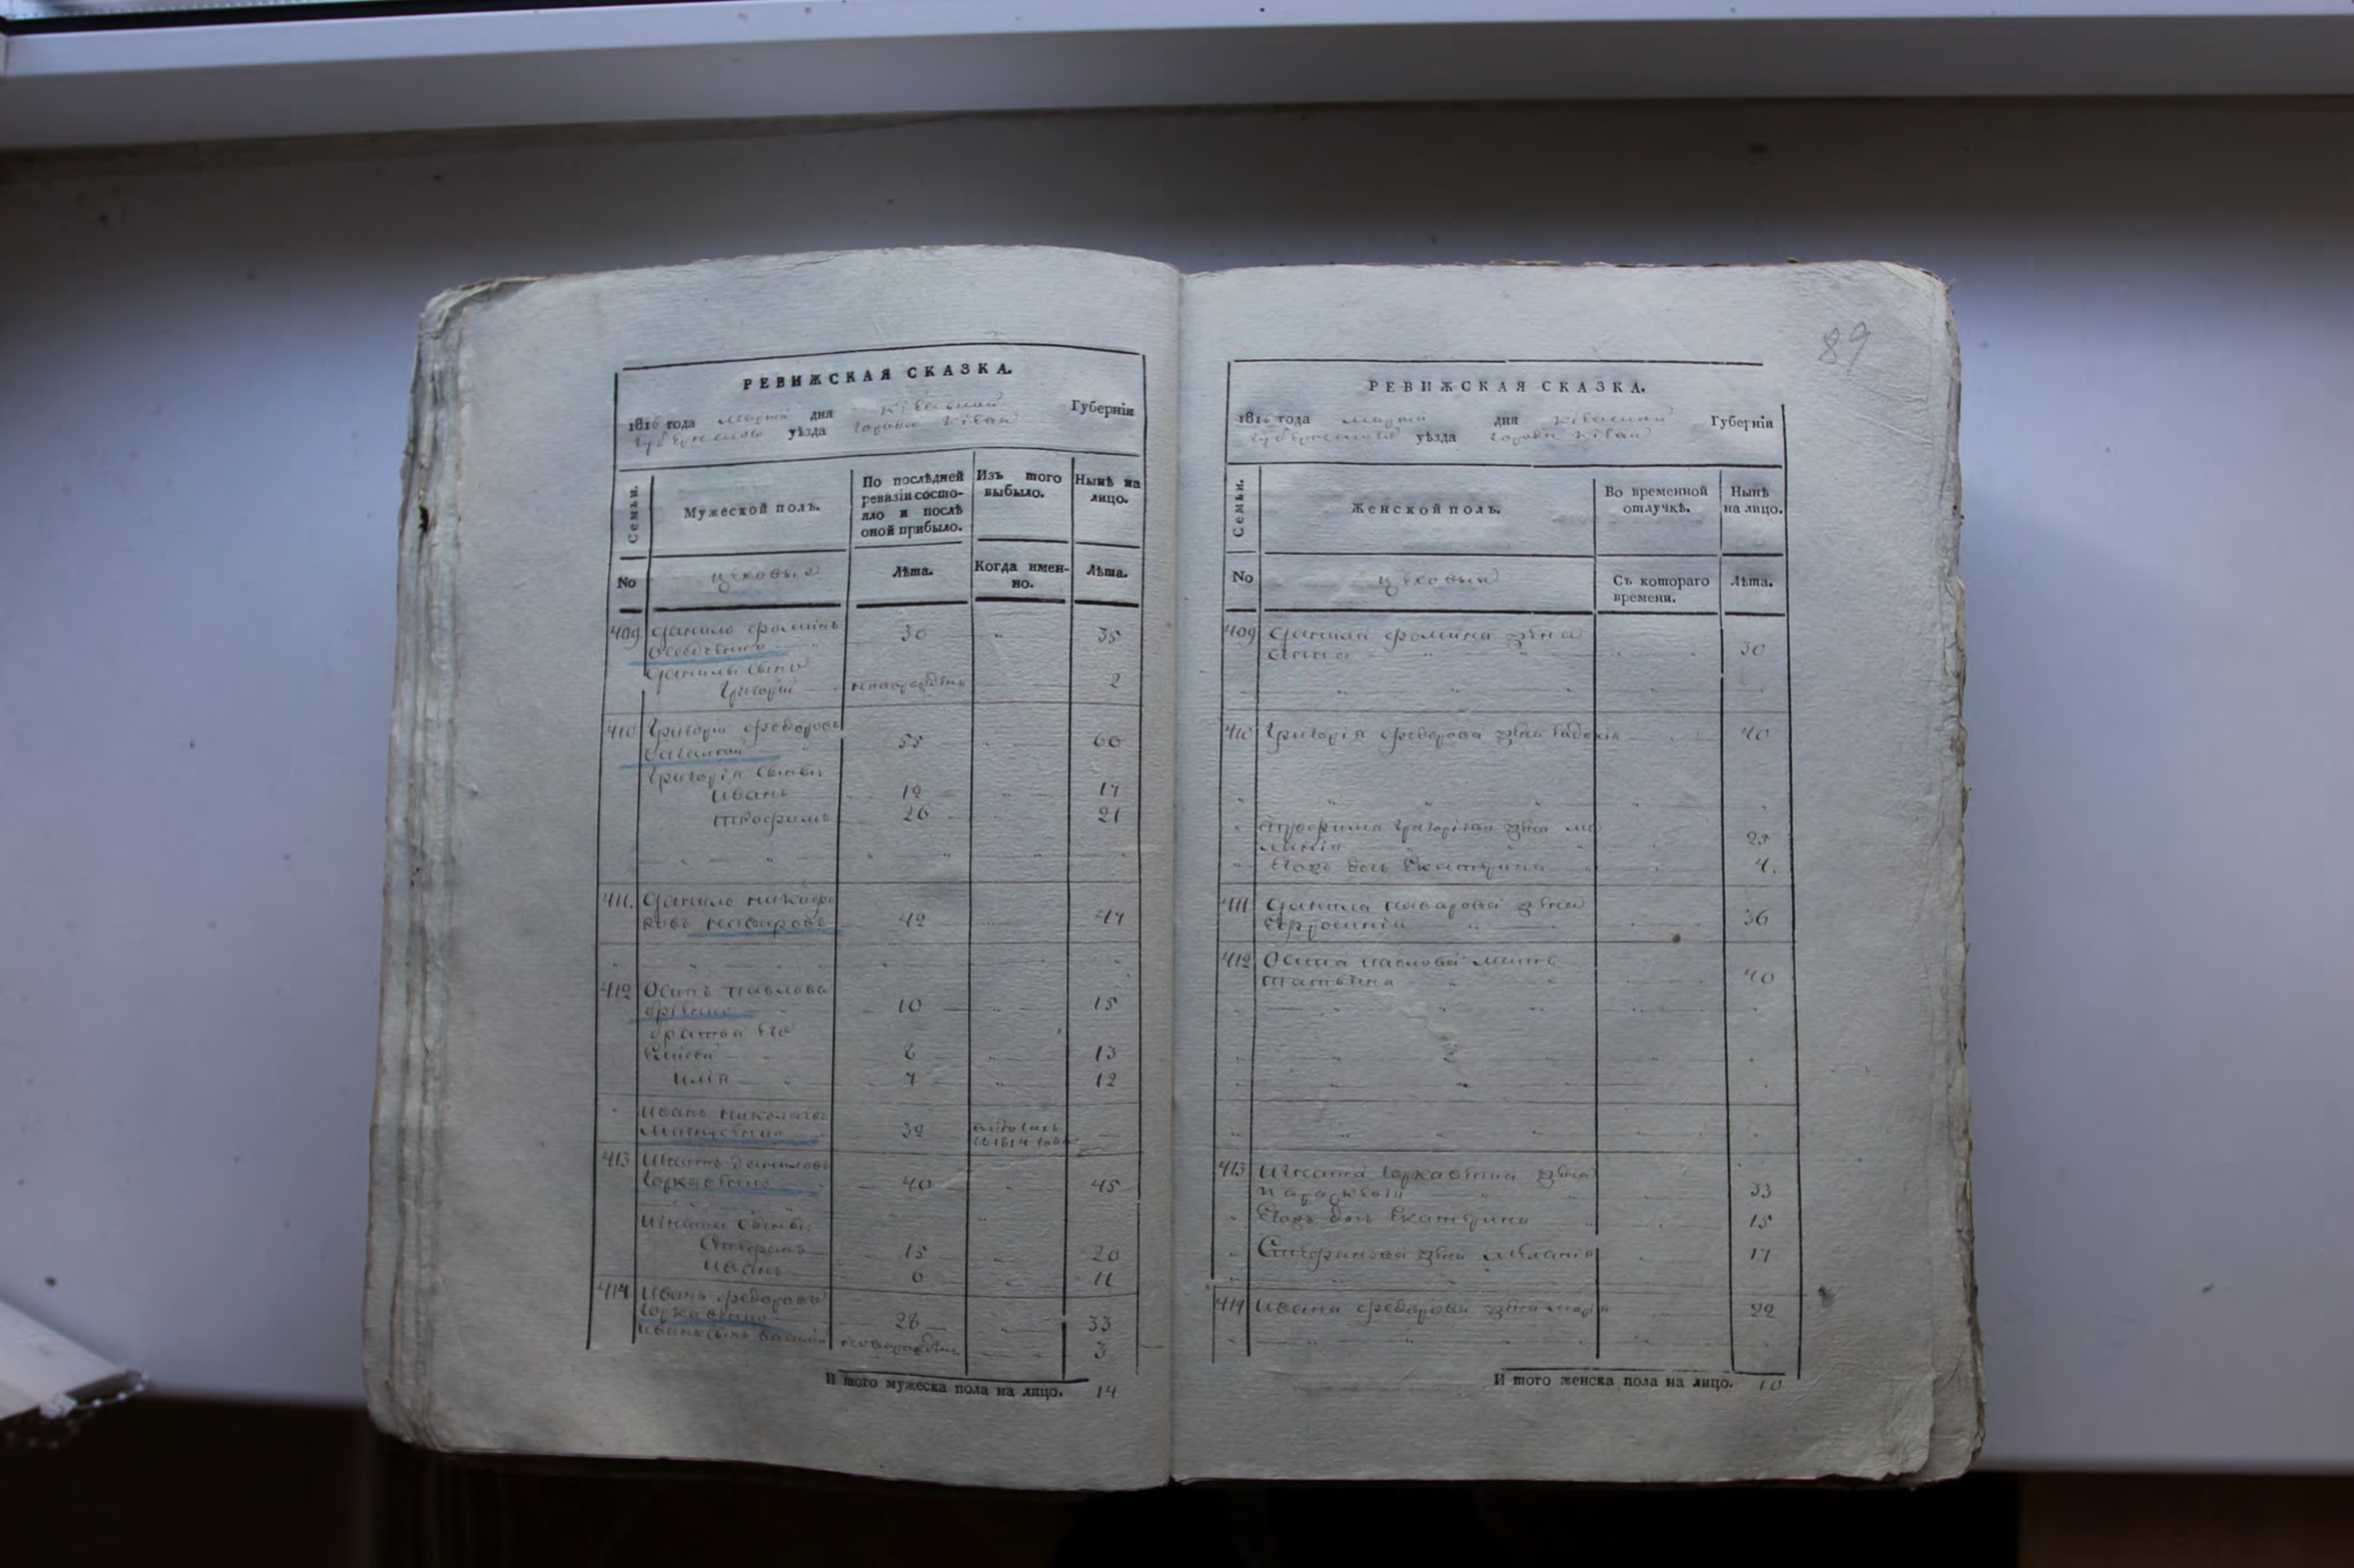 РЕВИЖСКАЯ СКАЗКА.
1816 года марта дня Кіевской Губерніи
Губернского уѣзда города Кіева
Семьи.
Мужеской полъ.
По послѣдней ревизіи состояло и послѣ оной прибыло.
Изъ того выбыло.
Нынѣ на лицо.
No
цеховыя
Лѣта.
Когда именно.
Лѣта.
409 Данило Фоминъ 30 35
Данилы сынъ
Григорій новорожденъ 2
410 Григорій Федоровъ
55 60
Григорія сыновья
Иванъ 12 17
Трофимъ 26 21
411. Данило Никифо
ровъ 42 47
412 Осипъ Павловъ
10 15
братья его
8 13
Илія 7 12
Иванъ Николаевъ
32
413 Игнатъ Даниловъ
Горкавенко 40 45
Игната сыны:
Стефанъ 15 20
Иванъ 6 11
414 Иванъ Федоровъ
Горкавенко 28 33
Иванъ сынъ Василій новорожденъ 3
И того мужеска пола на лицо. 14
89
РЕВИЖСКАЯ СКАЗКА.
1816 года марта дня Кіевской Губерніи
Губернского уѣзда города Кіева
Семьи.
Женской полъ.
Во временной отлучкѣ.
Нынѣ на лицо.
No
цеховыя
Съ котораго времени.
Лѣта.
409 Данила Фомина жена
Анна 30
410 Григорія Федорова жена Евдокія 40
Трофима Григорьева жена Ме
ланія 25
Ихъ дочь Екатерина 4.
411 Данила жена
Евфросинія 36
412 Осипа Павлова мать
Татьяна 40
413 Игната Горкавенка жена
Параскевія 33
Ихъ дочь Екатерина 15
Стефанова жена Меланія 17
414 Ивана Федорова жена Марія 22
И того женска пола на лицо. 10